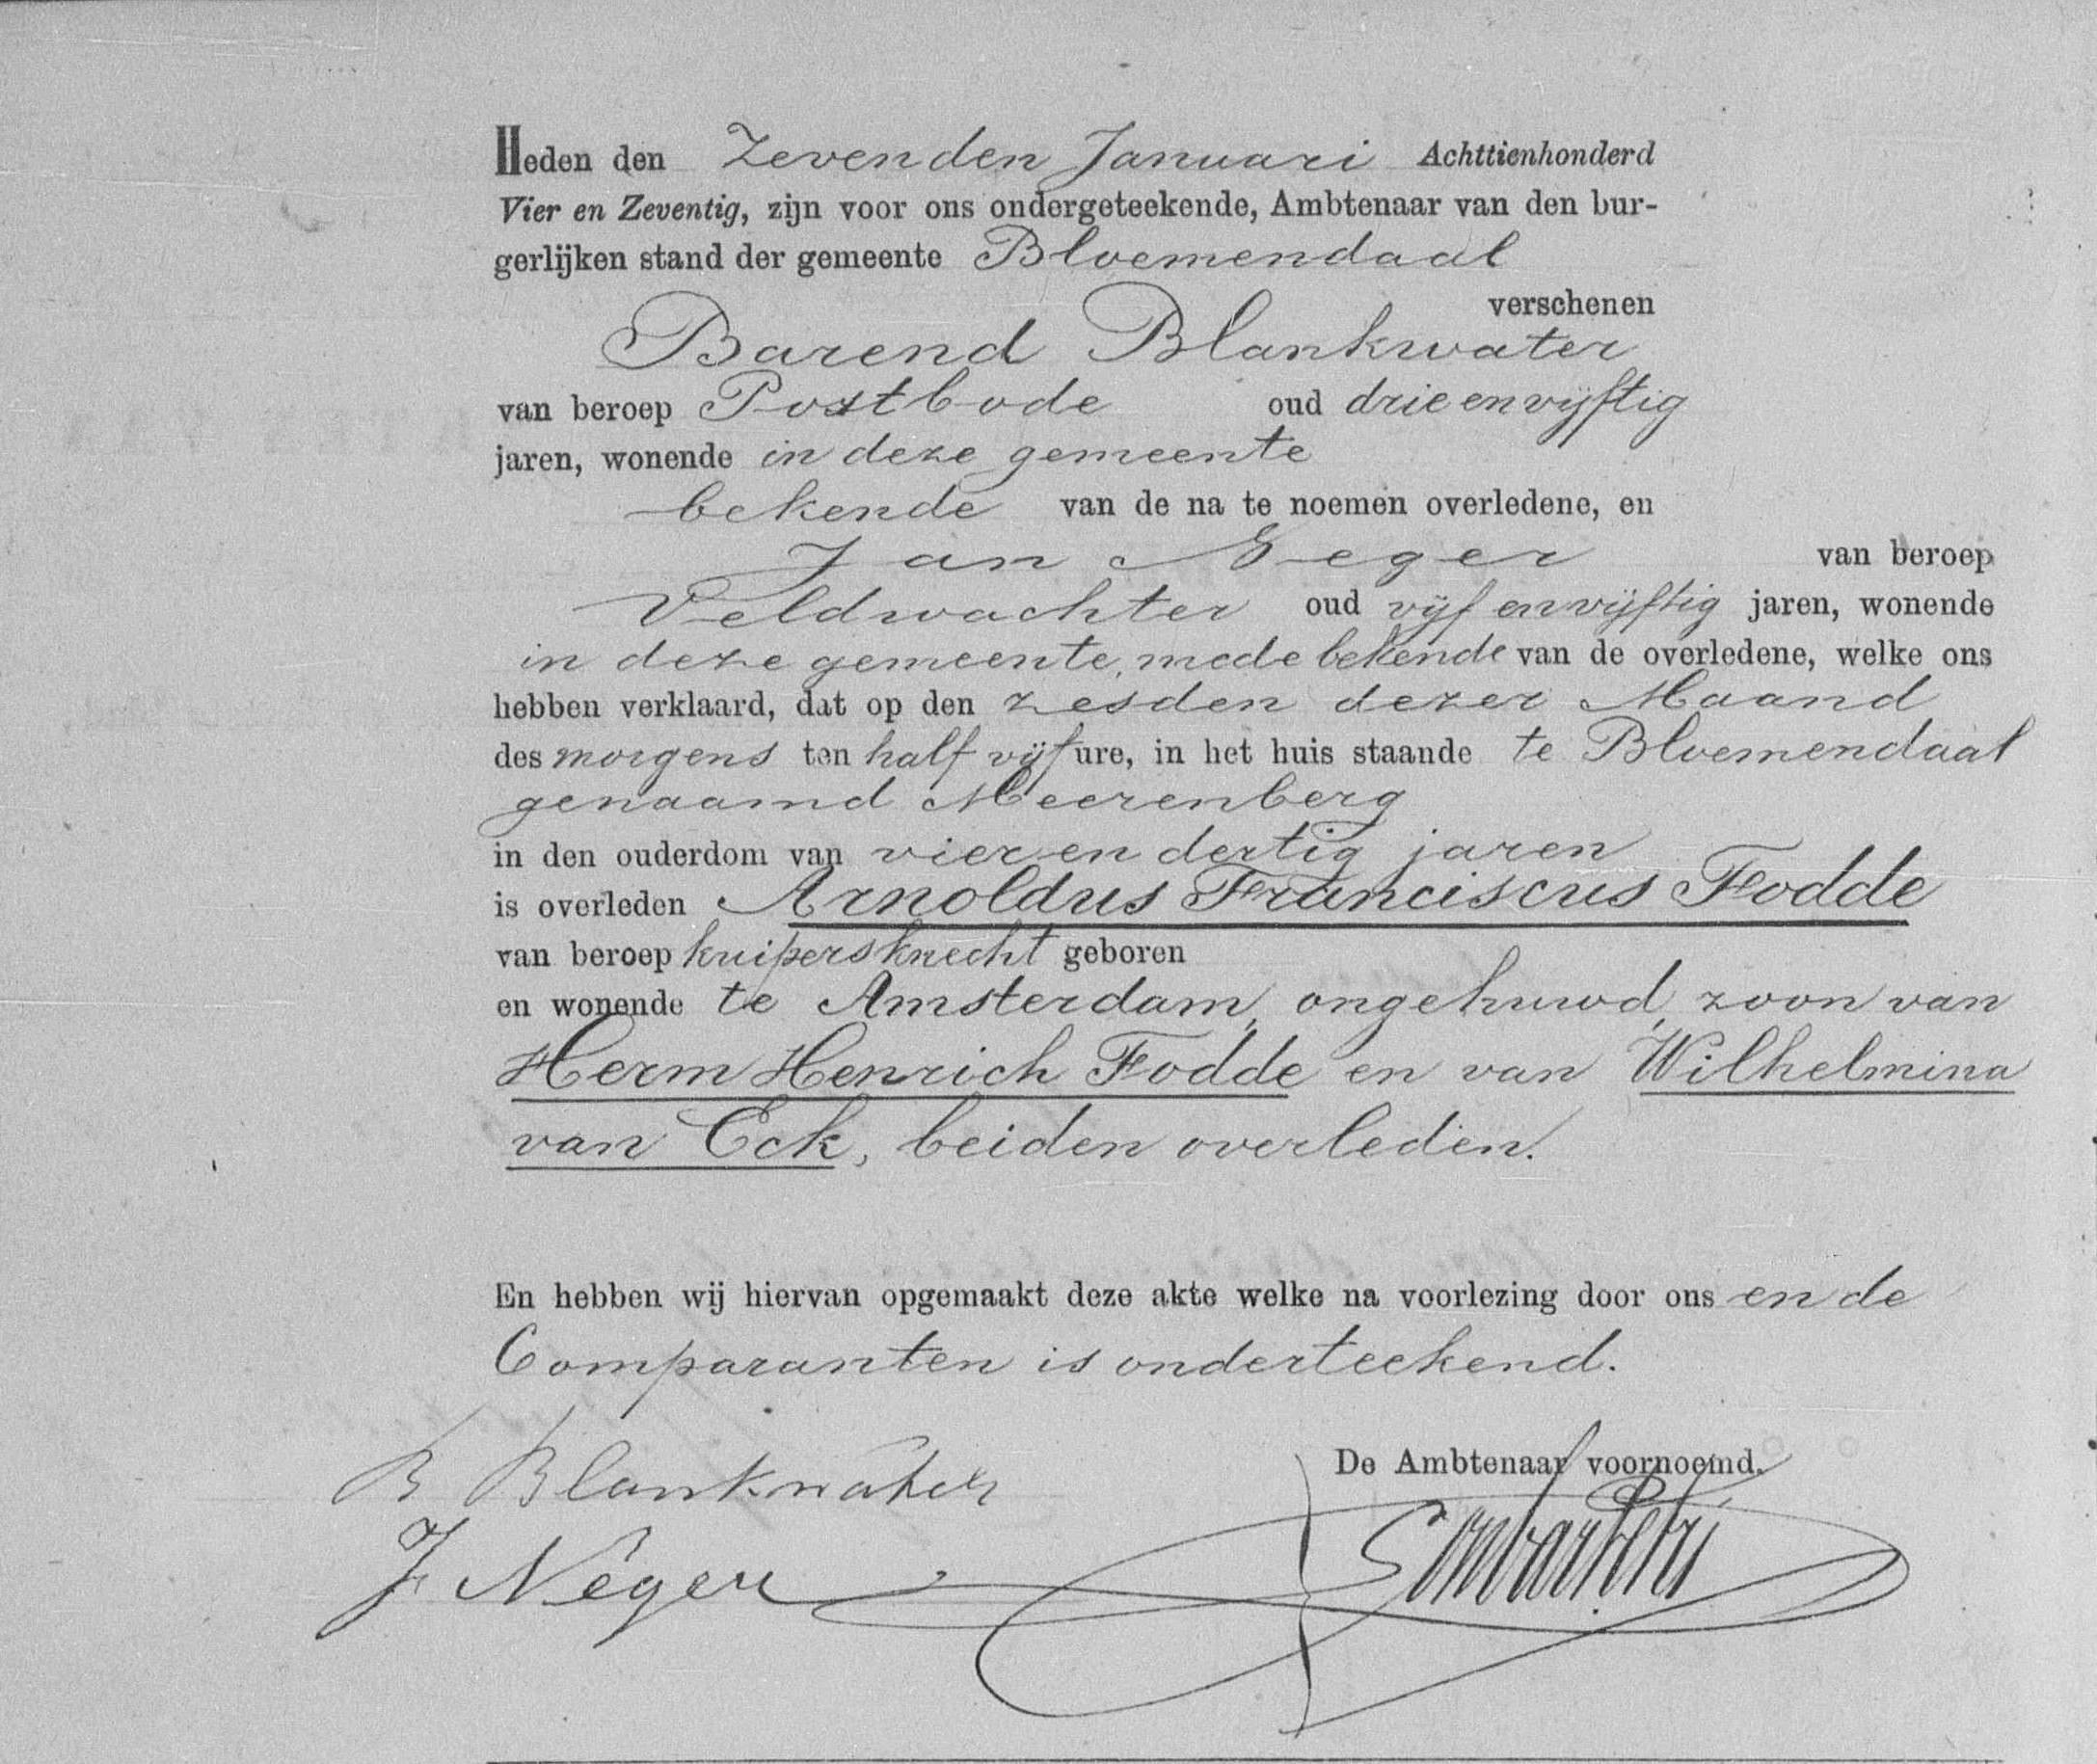 Heden den Zevenden Januari Achttienhonderd
Vier en Zeventig, zijn voor ons ondergeteekende, Ambtenaar van den bur-
gerlijken stand der gemeente Bloemendaal
verschenen
Barend Blankwater
van beroep Postbode oud drie en vijftig
jaren, wonende in deze gemeente
bekende van de na te noemen overledene, en
Jan Neger van beroep
Veldwachter oud vijf en vijftig jaren, wonende
in deze gemeente, mede bekende van de overledene, welke ons
hebben verklaard, dat op den zesden dezer Maand
des morgens ten half vijf ure, in het huis staande te Bloemendaal
genaamd Meerenberg
in den ouderdom van vier en dertig jaren
is overleden Arnoldus Franciscus Fodde
van beroep kuipersknecht geboren
en wonende te Amsterdam, ongehuwd, zoon van
Herm Henrich Fodde en van Wilhelmina
van Eck, beiden overleden.
En hebben wij hiervan opgemaakt deze akte welke na voorlezing door ons en de
Comparanten is onderteekend.
De Ambtenaar voornoemd.
B Blankwater
J Neger